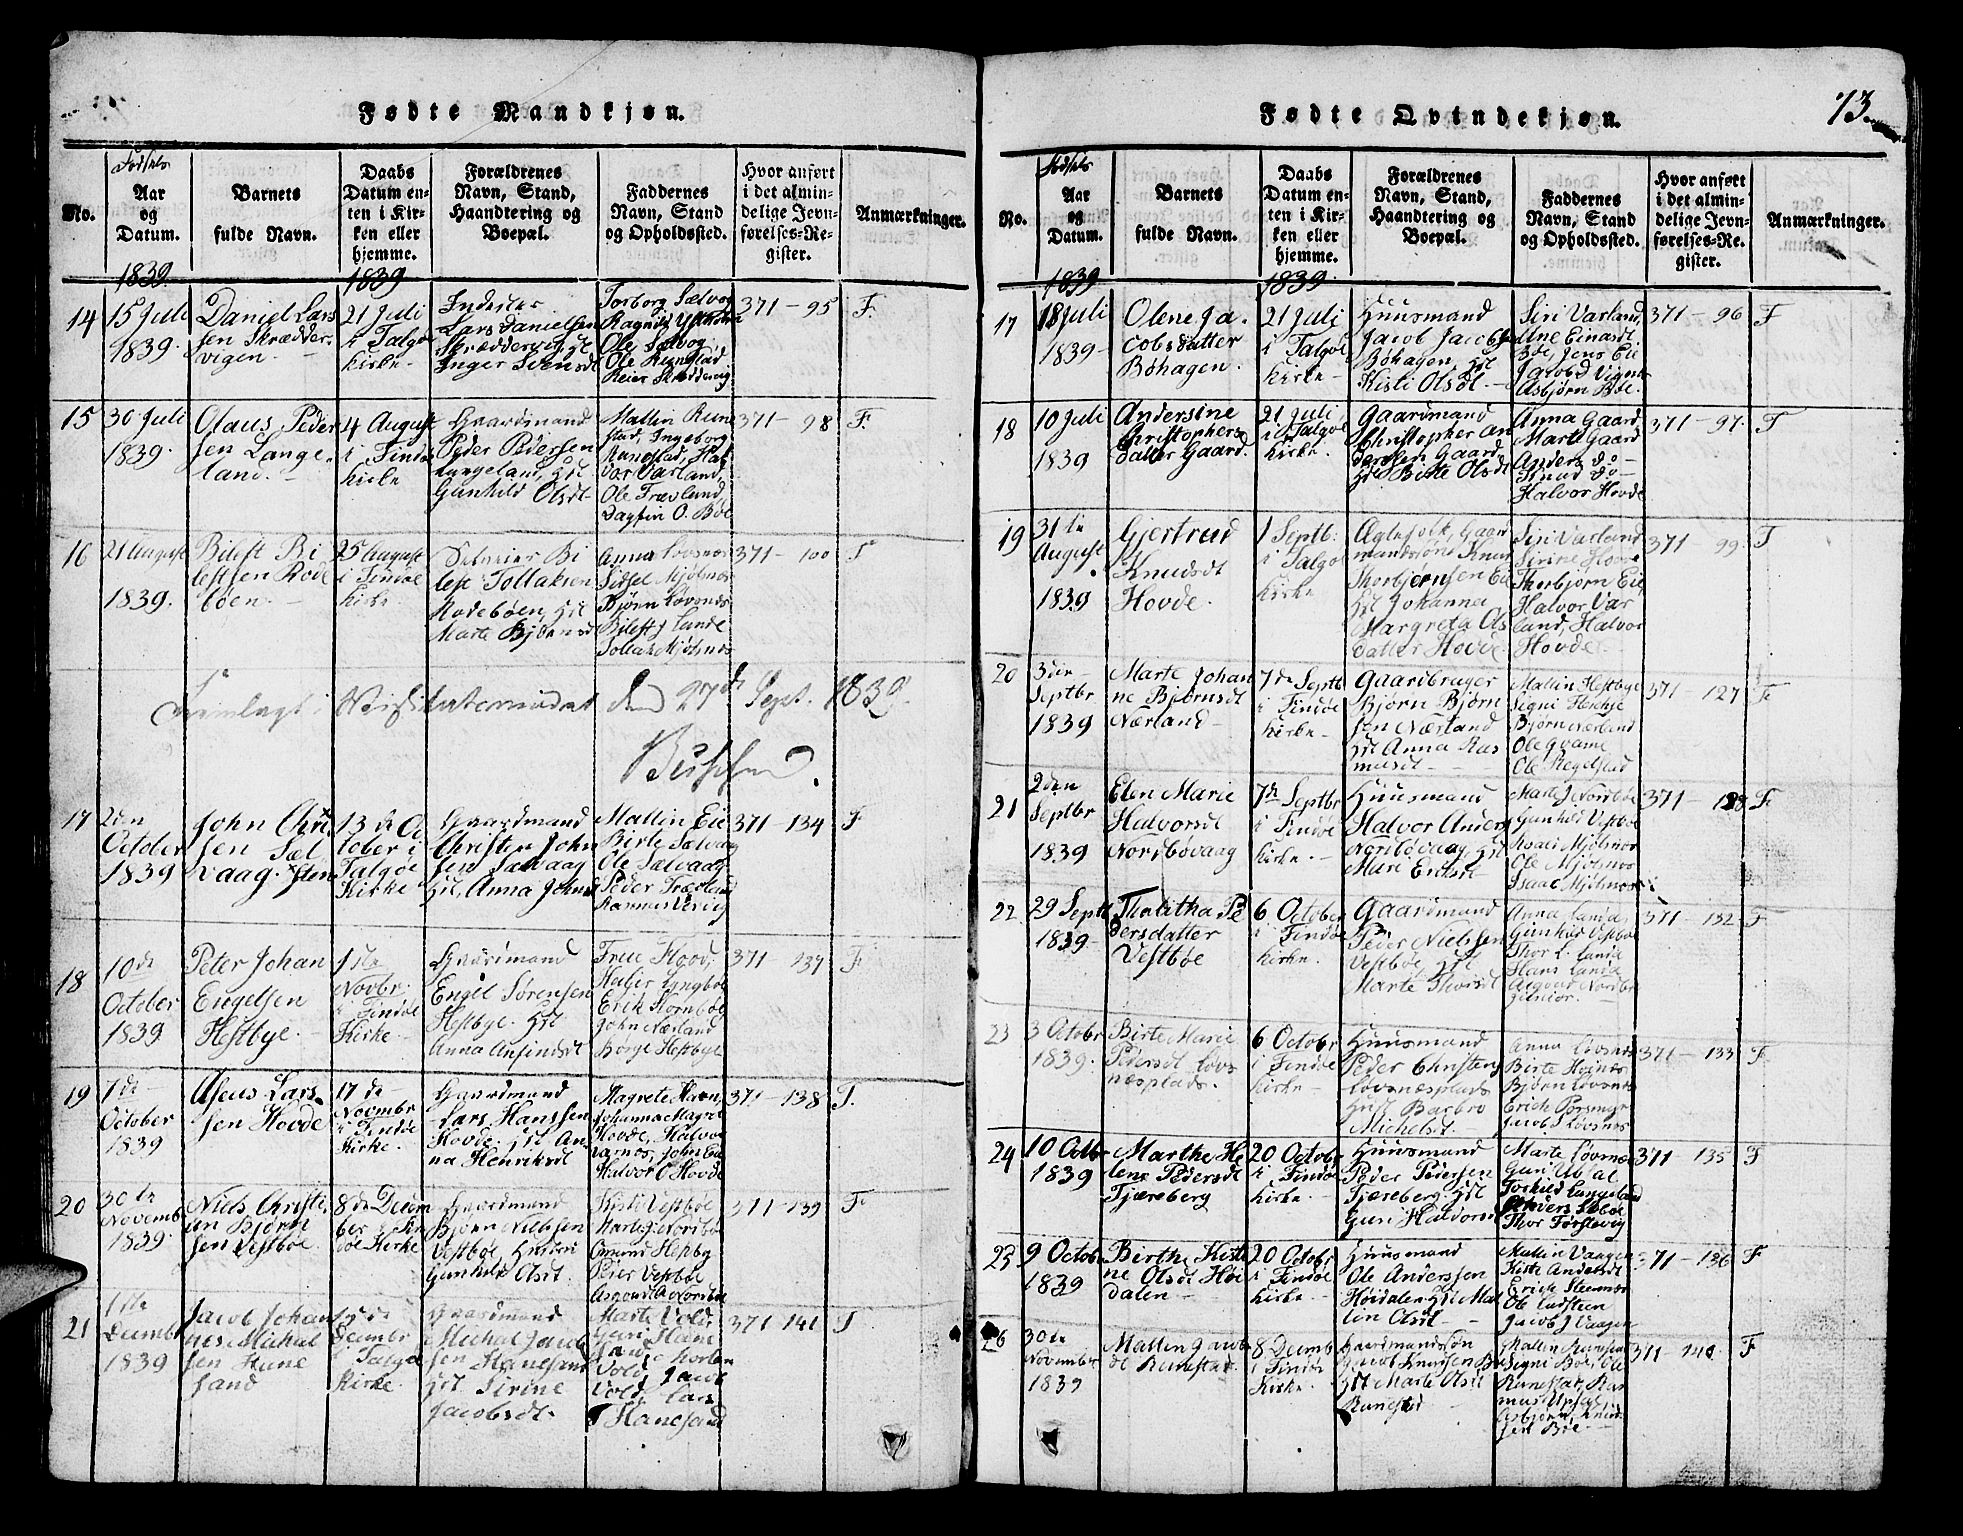 Fødte Mandkjøn.
No.
Fødsels
Aar
og
Datum.
Barnets
fulde Navn.
Daabs
Datum en-
ten i Kir-
ken eller
hjemme.
Forældrenes
Navn, Stand,
Haandtering og
Boepæl.
Faddernes
Navn, Stand
og Opholdssted.
Hvor anført
i det almin-
delige Jevn-
førelses-Re-
gister.
Anmærkninger.
1839
1839
14
15 Juli
1839.
Daniel Lars
sen Skrædder-
vigen.
21 Juli
i Talgøe
Kirke
Inderster
Lars Danielsen
Skræddervig, Hst
Inger Svensdt
Torborg Sælvog
Ragnild
Ole Sælvog
Ole Runestad
Reier Skræddervig
371 - 95
F.
15
30 Juli
1839.
Olaus Peder
sen Lange-
land.
4 August
i Findøe
Kirke
Gaardmand
Peder Pedersen
Langeland, Hst
Gunhild Olsdt
Mallin Rune
stad, Ingeborg
Runestad, Hal
vor Varland,
Ole Trævland
Dagfin O. Bøe
371 - 98
F.
16
21 August
1839.
Bileft Bi
leftsen Rode
bøen.
25 August
i Findøe
Kirke
Selveier Bi
left Tollaksen
Rodebøen, Hst
Marte Bjørnsdt
Anna Lovsnæs
Sidsel Mjølsnæs
Bjørn Lovsnæs
Bileft J Lande
Tollak Mjølsnæs
371 - 100
F
Fremlagt i Visitatsmødet den 27de Sept. 1839.
17
2den
October
1839
John Chri
sen Sæl
vaag. sten
13de Oc
tober i
Talgøe
Kirke
Gaardmand
Christen John
sen Sælvaag
Hst, Anna Johnsd
Mallin Eie
Birte Sælvaag
Ole Sælvaag
Peder Trævland
Rasmus Vervig
371 - 134
F
18
10de
October
1839
Peter Johan
Engelsen
Hestbye.
1ste
Novbr.
i Findøe
Kirke
Gaardmand
Engel Sørensen
Hestbye. Hst
Anna Ansindsdt
Frue Flood,
Halier Lyngbøe
Erik Hornbøe
John Nærland
Børge Hestbye
371 - 137
F
19
1de
October
1839
Aseus Lars
sen Hovde
17de
Novmbr
i Findøe
Kirke.
Gaardmand
Lars Hanssen
Hovde. Hst An
na Henriksdt
Magrete
Johanna Magre
Hovde, Halvor
Varnæs, John Eie
Halvor O Hovde
371 - 138
F.
20
30te
Novemb
1839.
Niels Christi
an Bjørn
sen Vestbøe.
8de Decem
ber i Fin
døe Kirke
Gaardmand
Bjørn Nielssen
Vestbøe, Hustru
Gunhild Olsdt.
Kisti Vestbøe
Marte J Nordbøe
Omund Hesby
Peder Vestbøe
Asgout A Nordbøe
371 - 139
F.
21
1ste
Decembr
1839
Jacob Johan
nes Michal
sen Hane
sand
15de
Decembr
i Talgøe
Kirke.
Gaardmand
Michal Jacob
sen Hanesand
Hst Sirine
Jacobsdt.
Marte Vold
Guri Hane
sand,
Vold, Jacob
Vold, Lars
Hanesand
371 - 141
F
Fødte Qvindekjøn.
73.
No.
Fødsels
Aar
og
Datum.
Barnets
fulde Navn.
Daabs
Datum en-
ten i Kir-
ken eller
hjemme.
Forældrenes
Navn, Stand,
Haandtering og
Boepæl.
Faddernes
Navn, Stand
og Opholdssted.
Hvor anført
i det almin-
delige Jevn-
førelses-Re-
gister.
Anmærkninger.
1839
1839.
17
18 Juli
1839
Olene Ja-
cobsdatter
Bøhagen.
21 Juli
i Talgøe
Kirke
Huusmand
Jacob Jacobs
Bøhagen, Hst
Kisti Olsdt.
Siri Varland,
Ane Einardt
Bøe, Jens Eie
Jacob d Vignes
Asbjørn Bøe.
371 - 96
F
18
10 Juli
1839
Andersine
Christophers
datter Gaard.
21 Juli
i Talgøe
Kirke.
Gaardmand
Christopher An
derssen Gaard
Hst Birte Olsdt
Anna Gaard
Marte Gaard
Anders do
Knud do
Halvor Hovde
371 - 97.
F
19
31te
August
1839
Gjertrud
Knudsdt
Hovde.
1 Septb:
i Talgø
Kirke
Ægtefolk, Gaard
mandssøn Knud
Thorbjørnsen Eie
Hst Johanna
Margreta Ols
datter Hovde
Siri Varland
Sirine Hovde
Thorbjørn Eie
Halvor Var
land, Halvor
Hovde.
371 - 99.
F
20
3den
Septbr
1839
Marte Johan
ne Bjørnsdt
Nærland
7de Septb
i Findøe
Kirke
Gaardbruger
Bjørn Bjørn
sen Nærland
Hst Anna Ras
musdt
Mallin Hestbye
Signi Hestbye
Bjørn Nærland
Ole Qvame
Ole Regelstad
371 - 127
F
21
2den
Septbr
1839
Elen Marie
Halvorsdt
Nordbøvaag
7de Septbr
i Findøe
Kirke.
Huusmand
Halvor Anders
Nordbøvaag Hst
Mari Eriksdt
Marte J Nordbøe
Gunhild Vestbøe
Roald Mjølsnæs
Ole Mjølsnæs
Isaac Mjølsnæs
371 - 128
F.
22
29 Septb
1839
Thalitha Pe
dersdatter
Vestbøe
6 October
i Findøe
Kirke.
Gaardmand
Peder Nielssen
Vestbøe Hst
Marte Thorsdt
Anna Landa,
Gunhild Vestbøe
Thor L. Landa
Hans Landa
Asgoud Nordbø
junior.
371 - 132
F
23
3 Octobr
1839.
Birte Marie
Pedersdt Lovs
næsplads.
6 October
i Findøe
Kirke
Huusmand
Peder Christens
Lovsnæsplads
Hust Barbro
Michelsdt.
Anna Lovsnæs
Birte Høinæs
Bjørn Lovsnæs
Erich Porsmyr
Jacob S Lovsnæs
371 - 133.
F
24
10 Octbr
1839
Marthe He
lene Pedersdt
Tjæreberg
20 Octobr
i Findøe
Kirke.
Huusmand
Peder Pedersen
Tjæreberg. Hst
Guri Haldorsdt
Marte Lovsnæs
Guri Ubdal
Torkild Langeland
Sælvøe
Thor Førsvvig
371 - 135
F
25
9 October
1839
Birthe Kisti
ne Olsdt Høi
dalen
20 October
i Findøe
Kirke
Huusmand
Ole Anderssen
Høidalen Hst Mal
lin Olsdt
Mallin Vaagen
Kiste Andersdt
Erich Steensnæs
Ole Ladsteen
Jacob J Vaagen
371 - 136
F
26
30te
November
1839
Mallin Jacobs
dt Runestad.
8 Decemb
i Findøe
Kirke.
Gaardmandssøn
Jacob Knudsen Bøe
Hst Marte Olsdt
Runestad
Mallin Runestad
Signi Bøe, Ole
Runestad, Ras
mus Upsal,
Asbjørn, Knud
sen Bøe
371 - 140
F